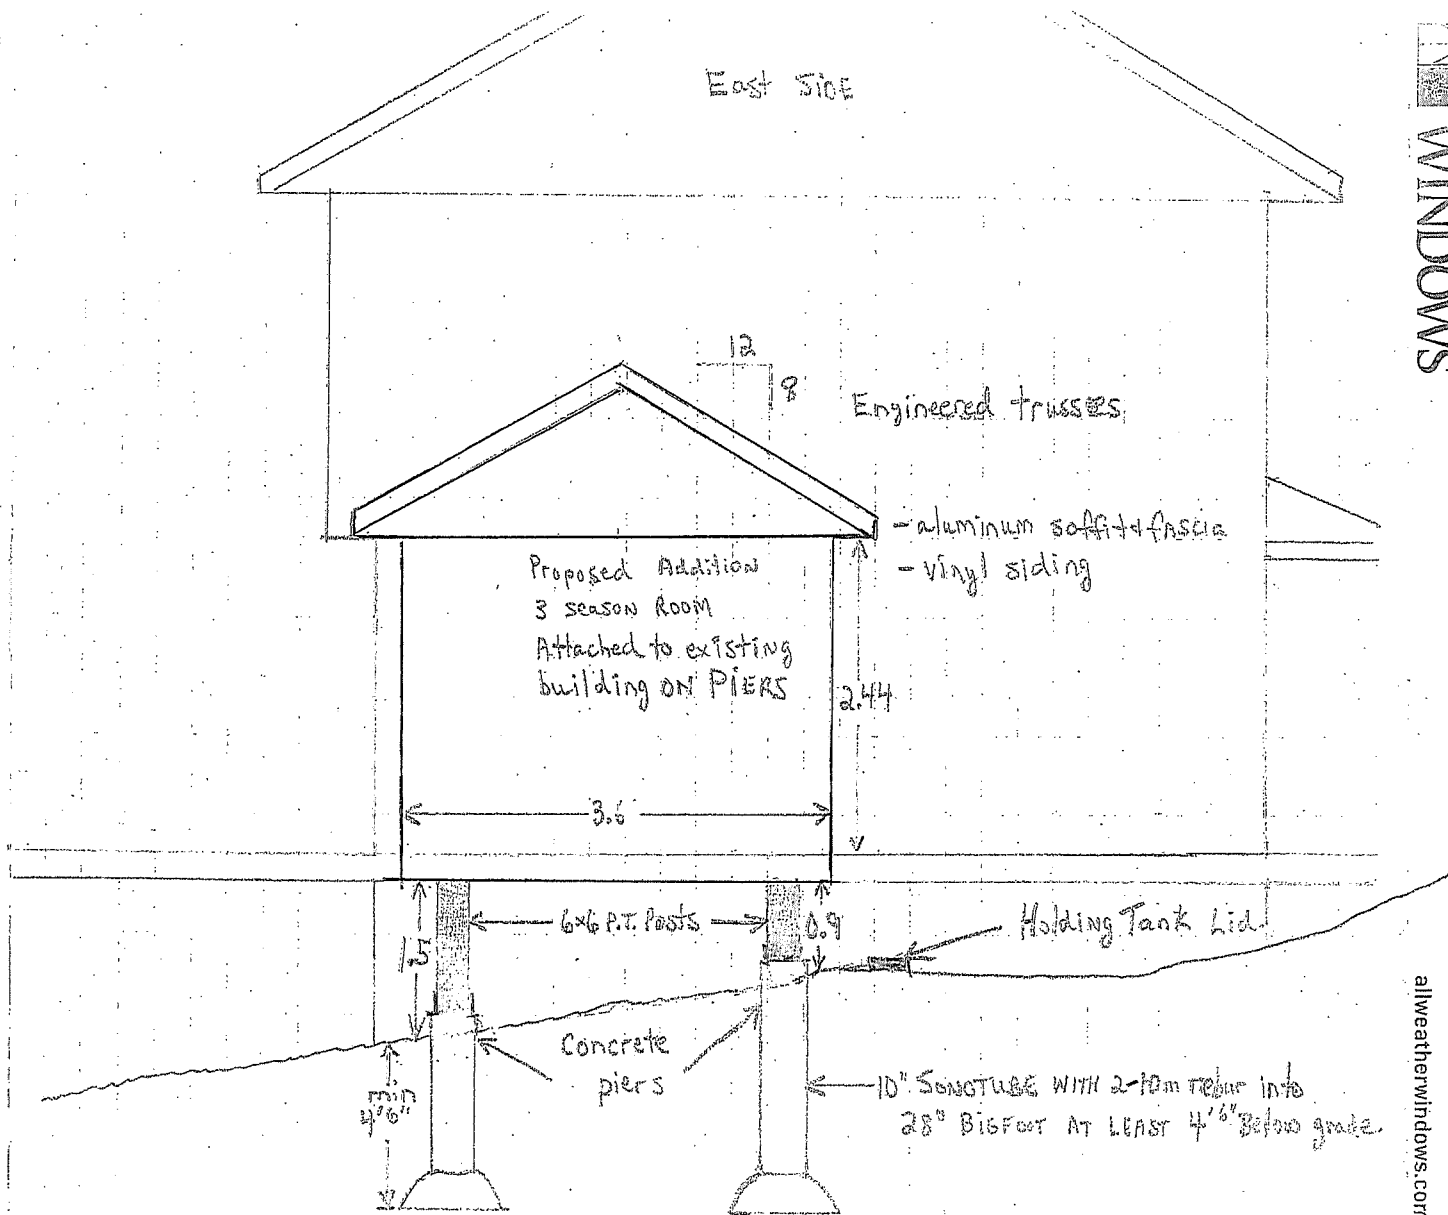 East SiDE
WINDOWS
12
8
Engineered trusses
- aluminum soffit & fascia
- vinyl siding
Proposed Addition
3 season Room
Attached to existing
building ON PIERS
2.44
3.6
6x6 P.T. Posts
1.5
0.9
Holding Tank Lid
Concrete
piers
min
4'6"
10" SONOTUBE WITH 2-10m rebar into
28" BIGFOOT AT LEAST 4'6" Below grade.
allweatherwindows.com